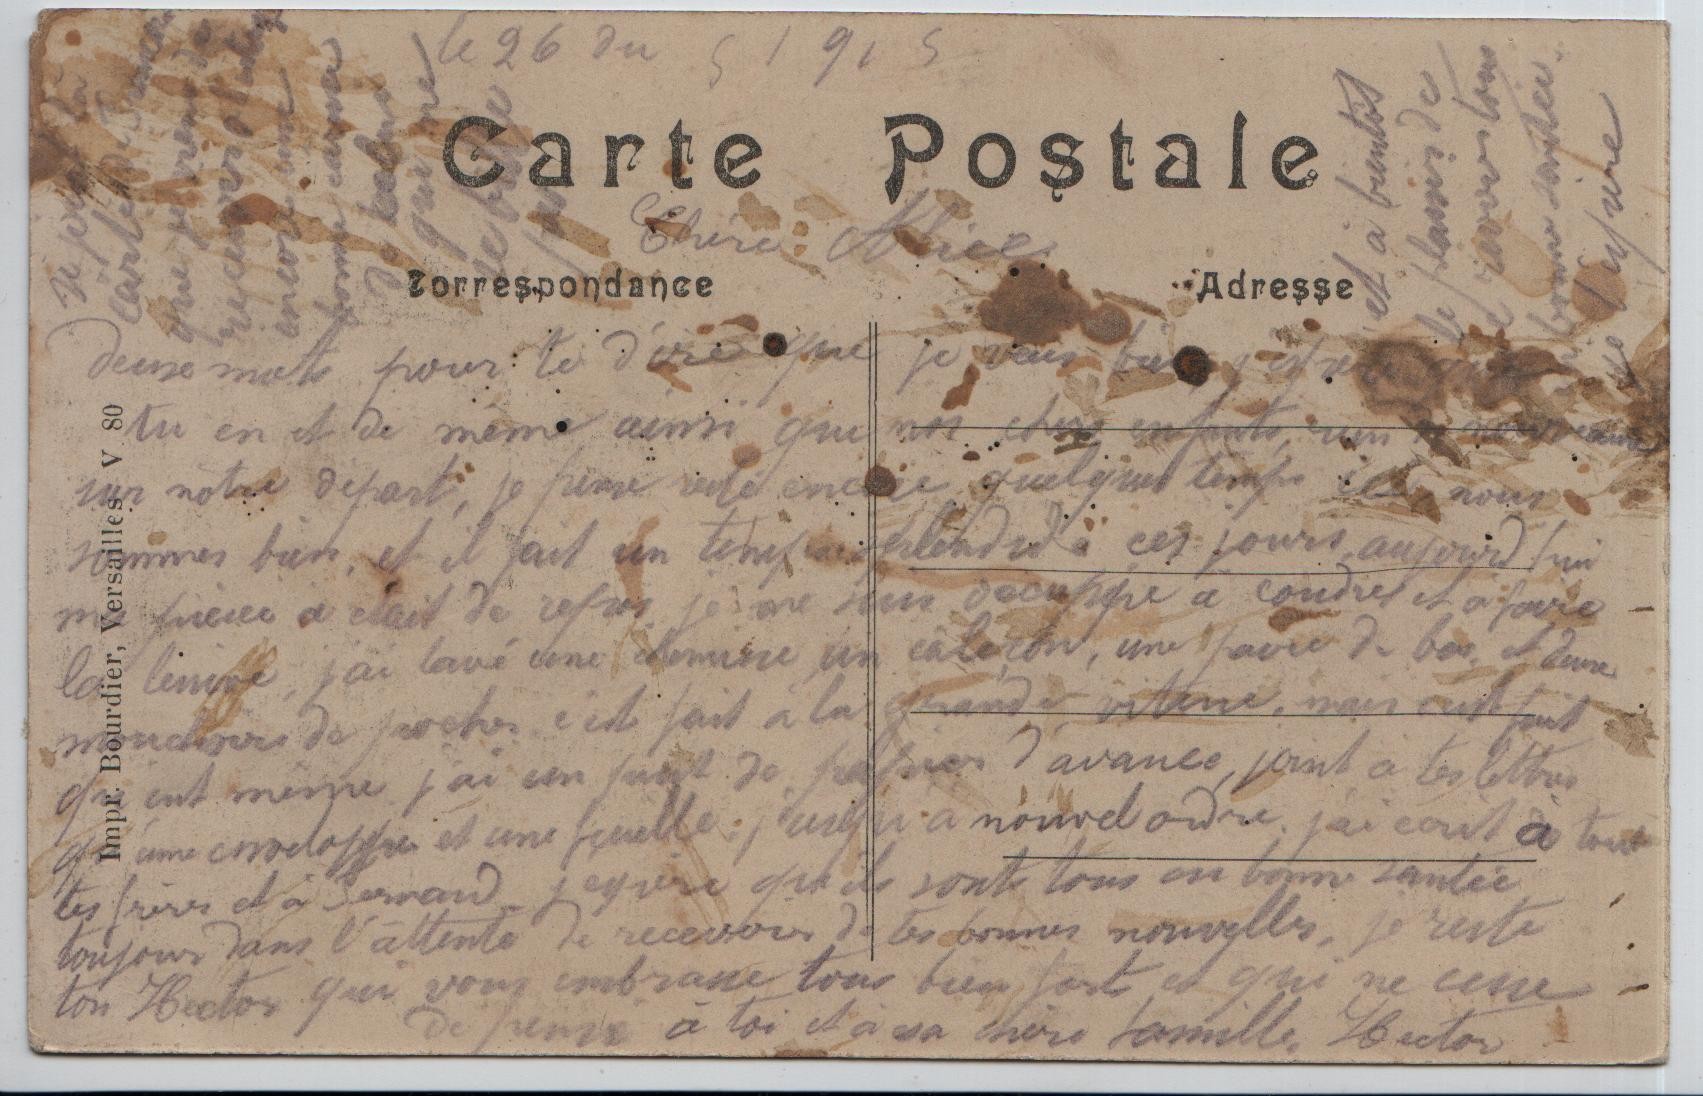 le 26 du 5 1915
Carte Postale
Chère Alice
Correspondance
Adresse
deux mots pour te dire que je vais bien j'espère que
tu en et de même ainsi que nos chers enfants, rien de nouveau
sur notre départ, je pense resté encore quelques temps ici, nous
sommes bien, et il fait un temps splendide ces jours, aujourd'hui
ma pièce a était de repos, je me suis occuppé a coudre et à faire
la lessive, j'ai lavé une chemise un caleçon, une paire de bas, et deux
mouchoirs de poches, c'est fait à la grande vitesse, mais c'est fait
qu'ent même, j'ai un peut de papier d'avance, joint à tes lettres
qu'une enveloppe et une feuille, jusqu'a nouvel ordre, j'ai écrit à tout
tes frères et à Fernand, j'espère qu'ils sont tous en bonne santée
toujours dans l'attente de recevoir de tes bonnes nouvelles, je reste
ton Hector qui vous embrasse tous bien fort et qui ne cesse
de pensé à toi et à sa chère famille, Hector
que je viens de
recevoir
encore une
bonne
et a bientôt
le plaisir de
vous tous
bonne santée.
je l'espère
Impr. Bourdier, Versailles V 80